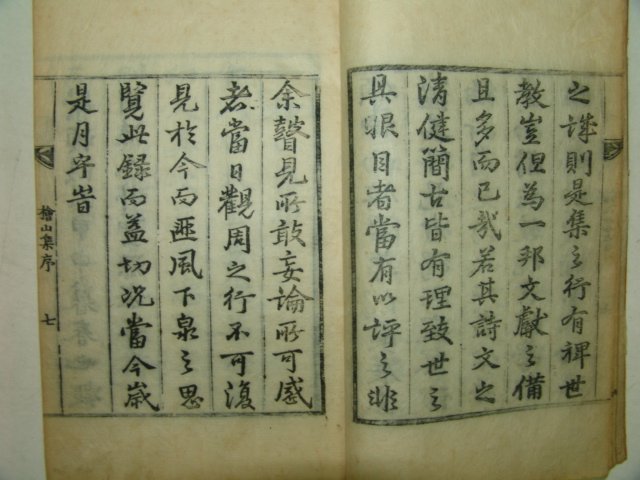 之誠則是集之行有裨世
教豈但為一邦文獻之備
且多而已哉若其詩文之
清健簡古皆有理致世之
具眼目者當有以評之非
余瞽見所敢妄論所可感
者當日觀周之行不可復
見於今而匪風下泉之思
覽此録而益切况當今歲
是月乎旹
檜山集序 七